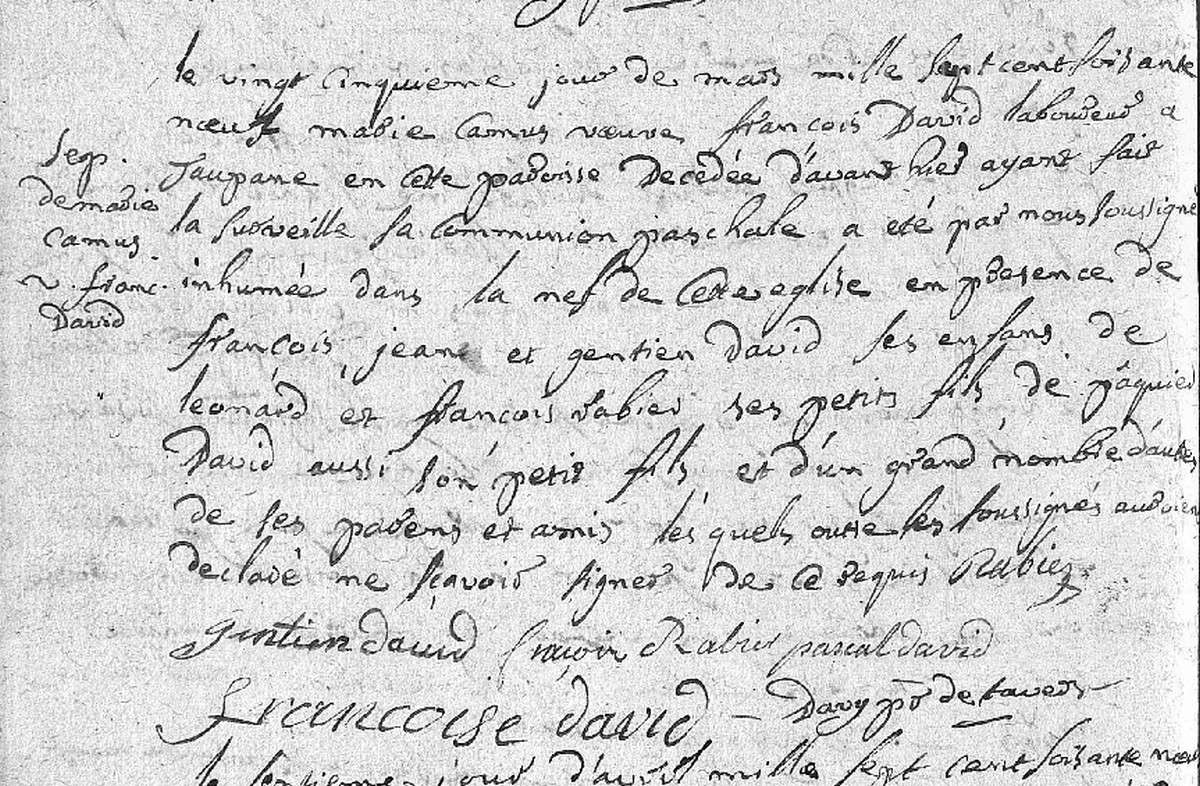 Sep.
de marie
camus
v. franc.
David
le vingt cinquienne jour de mars mille Sept cent soisante
nœuf marie Camus vœuve françois David laboureur a
Taupane en cette paroisse Decedée d'avant hier ayant fait
la surveille sa communion paschale a eté par nous soussigné
inhumée dans la nef de Cette eglise en presence de
françois, jean et gentien David ses enfans de
leonard et françois rabier ses petits fils de pâquier
David aussi son petit fils et d'un grand nombre d'autres
de ses parens et amis les quels outre les soussignés auroient
declaré ne sçavoir signer de ce requis Rabier
gentien david Rabier pascal david
francoise david Davy pr de tavers
le jour d'avril mille sept cent soisante nœuf